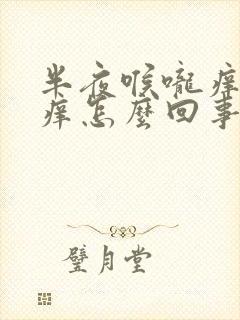 半夜喉嚨痒
痒怎麼回事
璧月堂